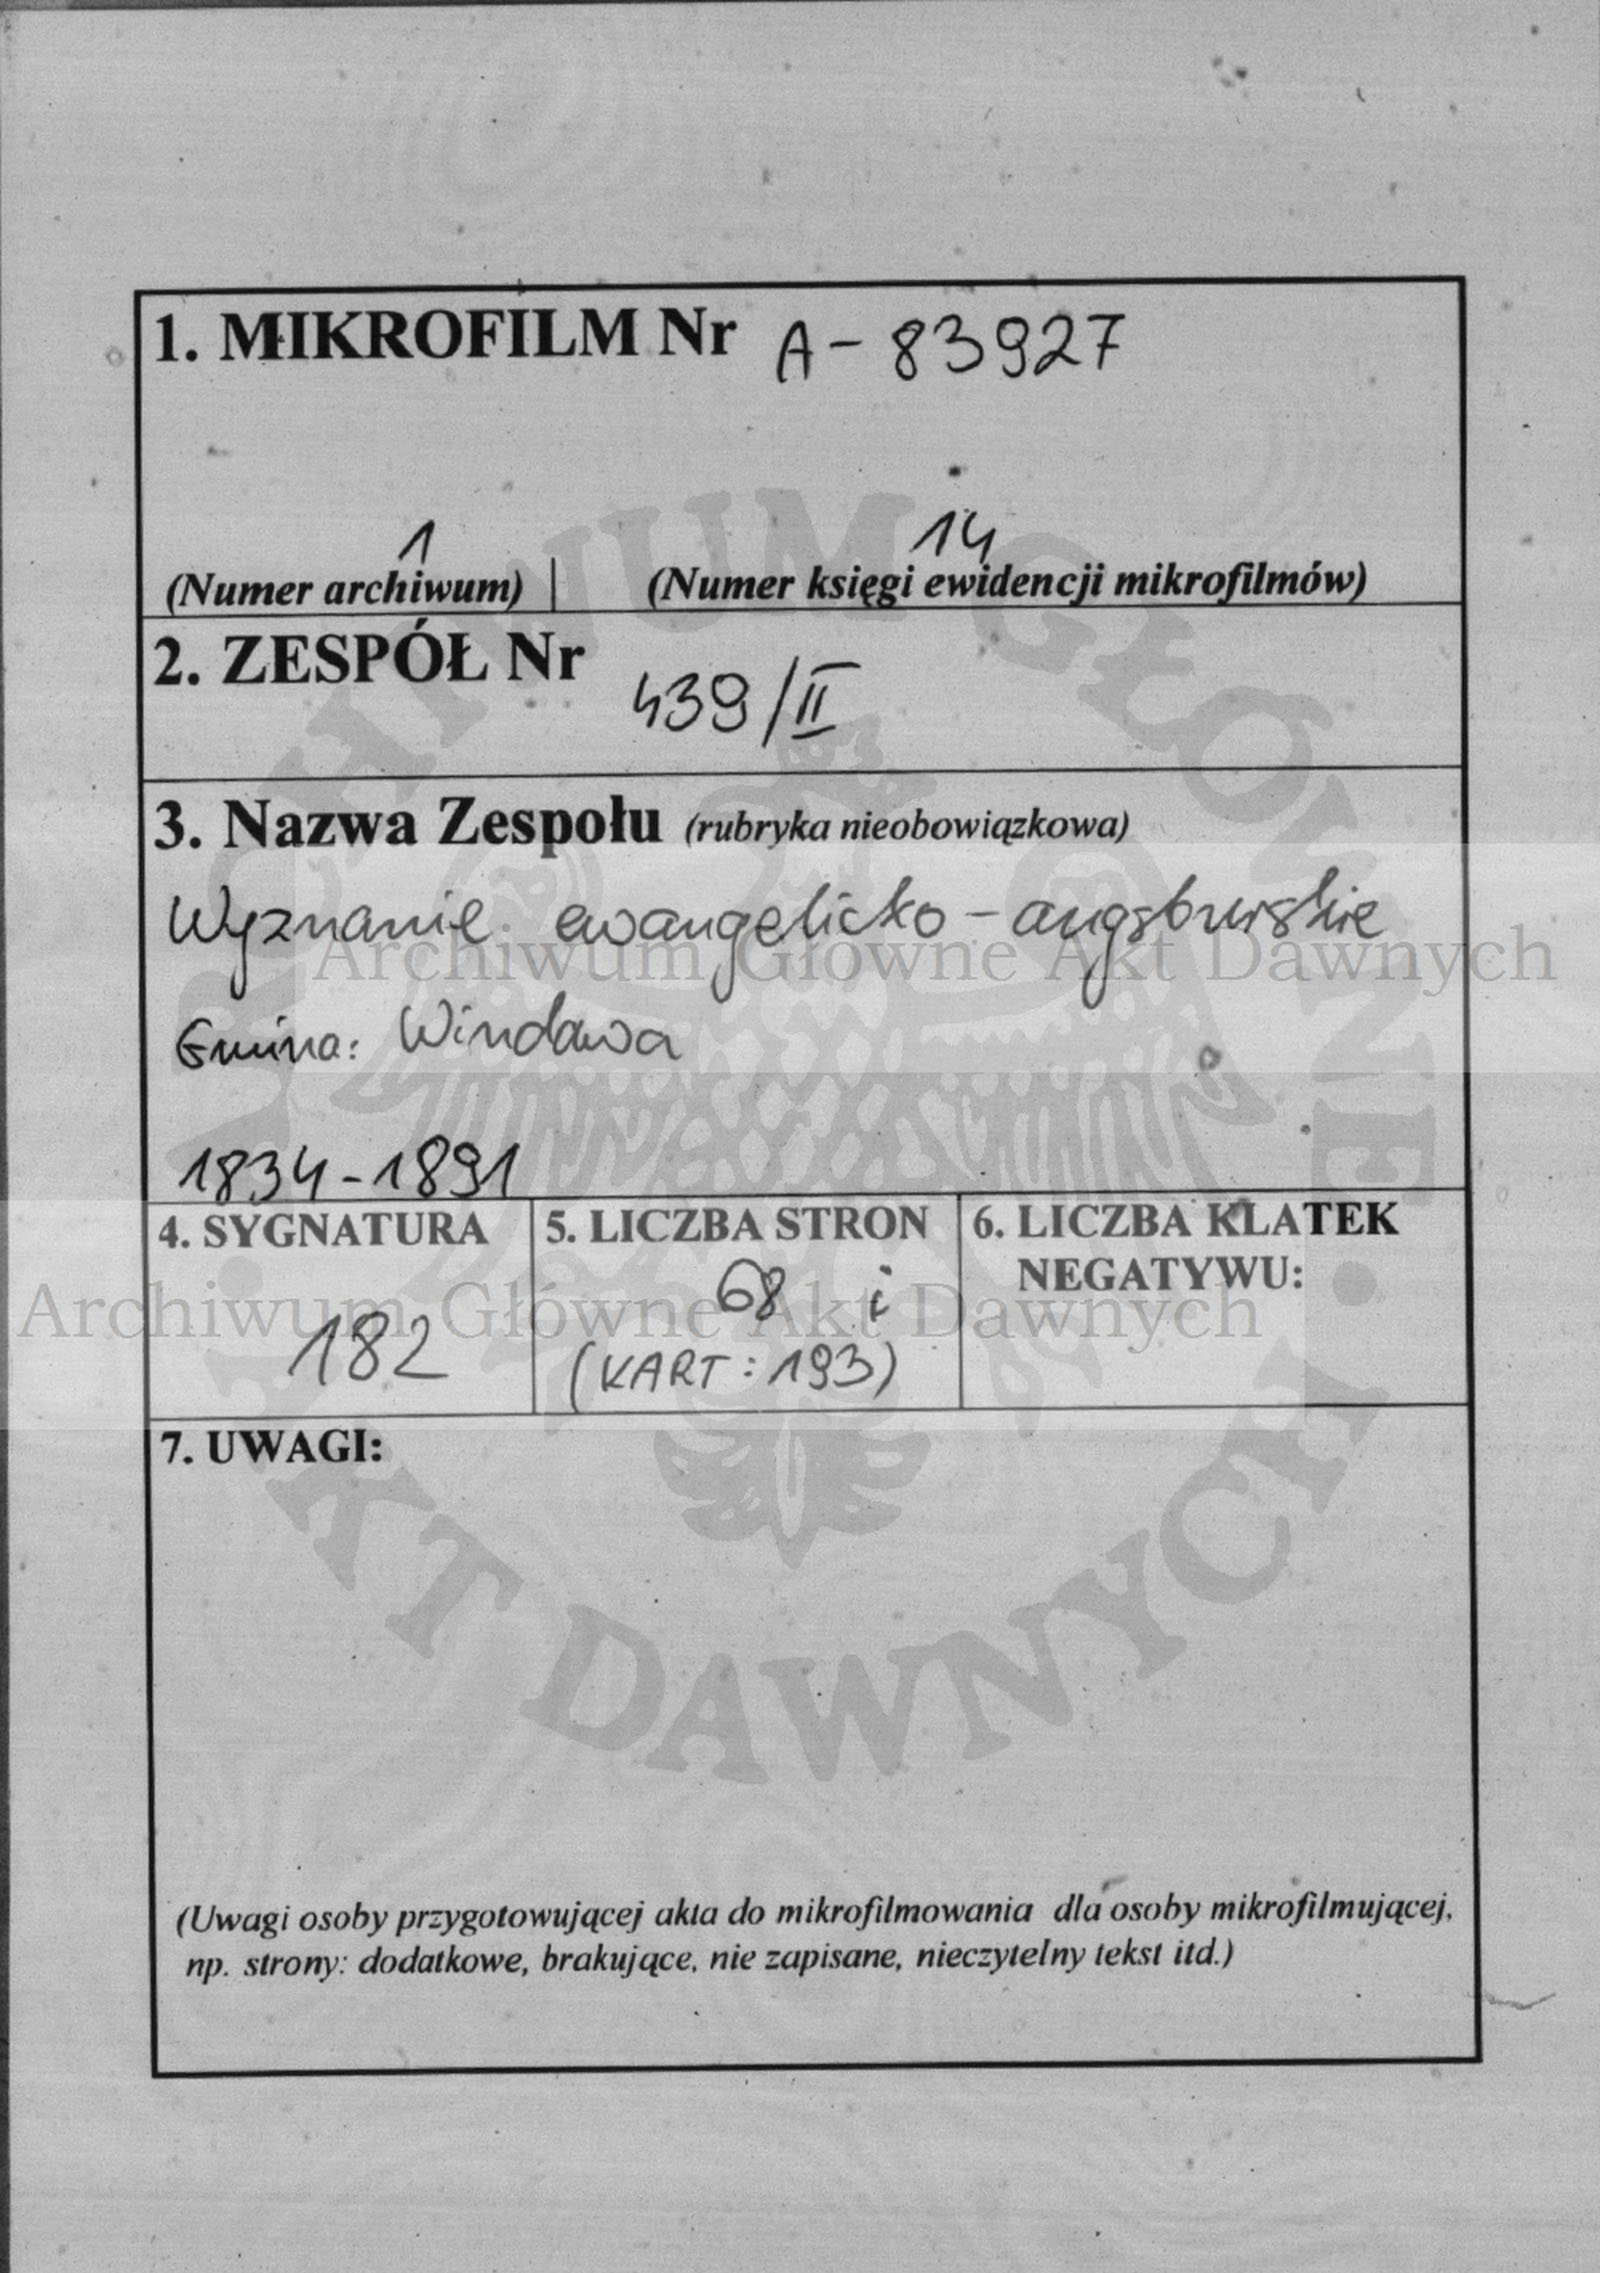 1. MIKROFILM Nr A-83927
1 14
(Numer archiwum) | (Numer księgi ewidencji mikrofilmów)
2. ZESPÓŁ Nr 439/II
3. Nazwa Zespołu (rubryka nieobowiązkowa)
Wyznanie ewangelicko-augsburskie
Archiwum Główne Akt Dawnych
Gmina: Windawa
1834-1891
4. SYGNATURA 5. LICZBA STRON 6. LICZBA KLATEK
NEGATYWU:
182 68 i
Archiwum Główne Akt Dawnych
(KART: 193)
7. UWAGI:
ARCHIWUM GŁÓWNE AKT DAWNYCH
(Uwagi osoby przygotowującej akta do mikrofilmowania dla osoby mikrofilmującej,
np. strony: dodatkowe, brakujące, nie zapisane, nieczytelny tekst itd.)